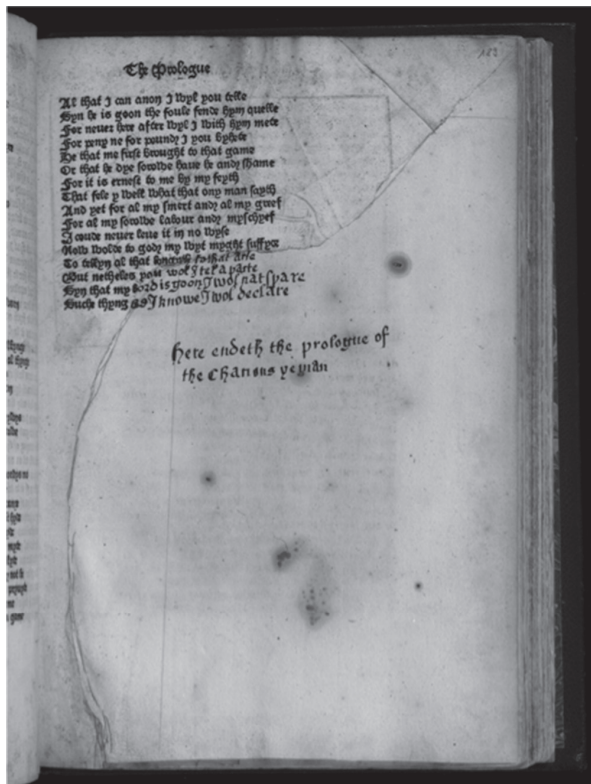 The Prologue
183
Al that I can anon I wyl you telle
Syn he is goon the foule fende hym quelle
For neuer here after wyl I with hym mete
For peny ne for pound I you byhete
He that me first brought to that game
Or that he dye sorowe haue he and shame
For it is ernest to me by my feyth
That fele y well what that ony man sayth
And yet for al my smert and al my greef
For al my sorowe labour and myschyef
I coude neuer leue it in no wyse
Now wolde to god my wyt myght suffyce
To tellyn al that longuith to that arte
But netheles you wol I tel a parte
Syn that my lord is goon I wol nat spare
Suche thyng as I knowe I wol declare
here endeth the prologue of
the Chanons yeman